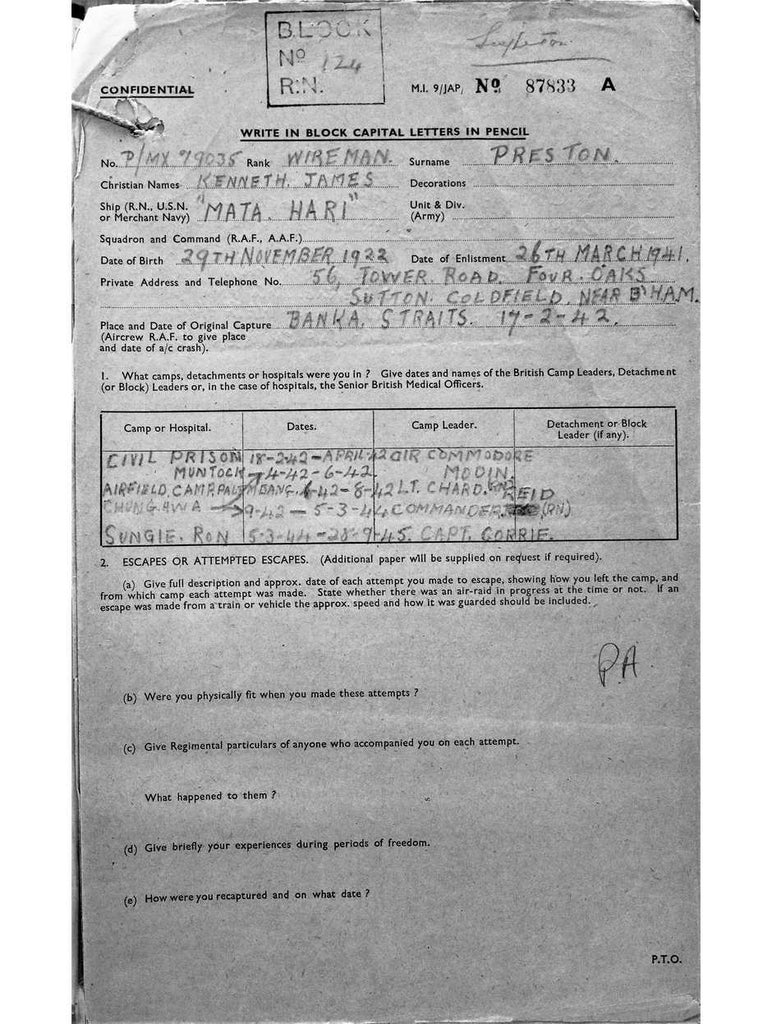 BLOCK
Nº 124
R.N.
CONFIDENTIAL
M.I. 9/JAP, Nº 87833 A
WRITE IN BLOCK CAPITAL LETTERS IN PENCIL
No. P/MX 79035 Rank WIREMAN. Surname PRESTON.
Christian Names KENNETH. JAMES Decorations
Ship (R.N., U.S.N. or Merchant Navy) "MATA. HARI" Unit & Div. (Army)
Squadron and Command (R.A.F., A.A.F.)
Date of Birth 29TH NOVEMBER 1922 Date of Enlistment 26TH MARCH 1941.
Private Address and Telephone No. 56, TOWER. ROAD. FOUR. OAKS
SUTTON. COLDFIELD. NEAR B'HAM.
Place and Date of Original Capture BANKA. STRAITS. 17-2-42.
(Aircrew R.A.F. to give place
and date of a/c crash).
1. What camps, detachments or hospitals were you in ? Give dates and names of the British Camp Leaders, Detachment
(or Block) Leaders or, in the case of hospitals, the Senior British Medical Officers.
Camp or Hospital. Dates. Camp Leader. Detachment or Block Leader (if any).
CIVIL PRISON 18-2-42-APRIL-42 AIR COMMODORE
MUNTOCK 4-42-6-42. MODIN.
AIRFIELD. CAMP. PALMBANG. 6-42-8-42 LT. CHARD. RN
CHUNGAWA 9-42-5-3-44 COMMANDER REID (RN)
SUNGIE. RON 5-3-44-28-9-45. CAPT. CORRIE.
2. ESCAPES OR ATTEMPTED ESCAPES. (Additional paper will be supplied on request if required).
(a) Give full description and approx. date of each attempt you made to escape, showing how you left the camp, and
from which camp each attempt was made. State whether there was an air-raid in progress at the time or not. If an
escape was made from a train or vehicle the approx. speed and how it was guarded should be included.
PA
(b) Were you physically fit when you made these attempts ?
(c) Give Regimental particulars of anyone who accompanied you on each attempt.
What happened to them ?
(d) Give briefly your experiences during periods of freedom.
(e) How were you recaptured and on what date ?
P.T.O.